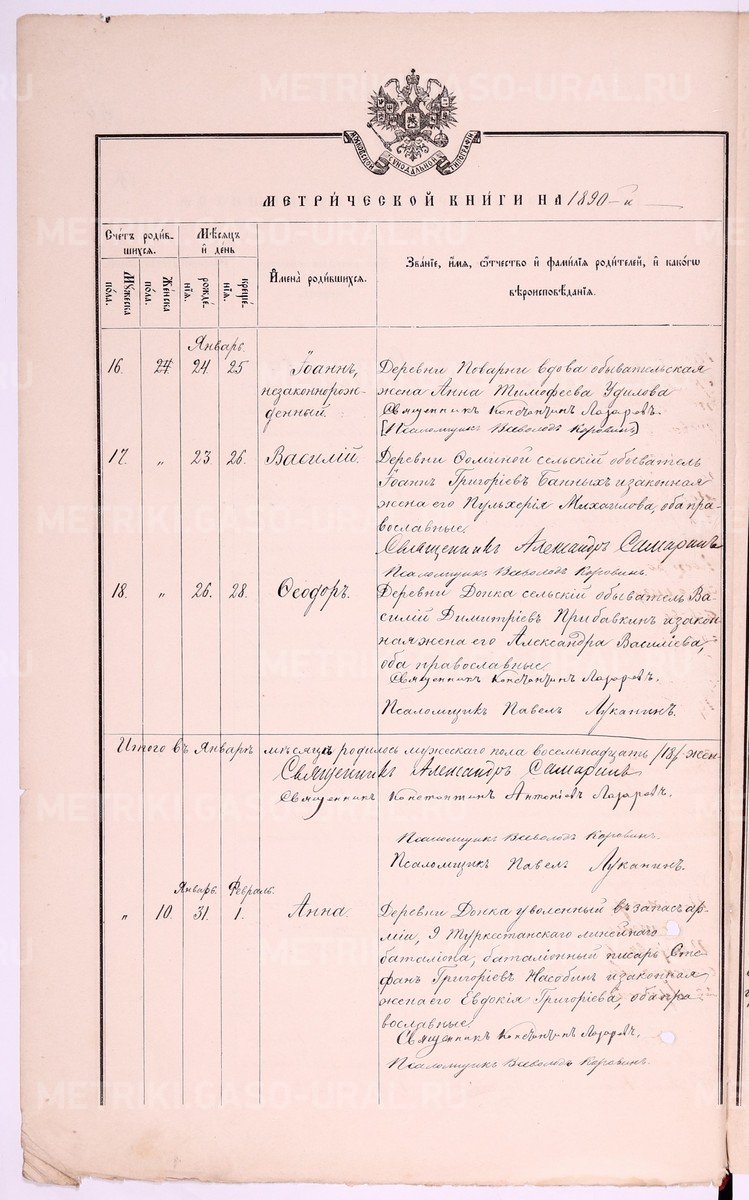 METRIKI.GASO-URAL.RU
МОСКОВСКОЙ СѴНОДАЛЬНОЙ ТИПОГРАФІИ
МЕТРИ́ЧЕСКОЙ КНИ́ГИ НА 1890-й
Сче́тъ роди́в-
шихся.
Мѣ́сяцъ
и҆ де́нь
Му́жеска
по́ла.
Же́нска
по́ла.
рожде́-
нїя.
креще́-
нїя.
И҆мена̀ роди́вшихся.
Зва́нїе, и҆́мя, ѻ҆́тчество и҆ фами́лїя роди́телей, и҆ како́гѡ
вѣроисповѣ́данїя.
Январь.
16. 24 24 25 Іоаннъ, Деревни Поварни вдова обывательская
незаконнорож- жена Анна Тимофеева Удилова
денный. Священникъ Констънтинъ Лазаревъ.
[Псаломщикъ Всеволодъ Коровинъ]
17. „ 23. 26. Василій. Деревни Ѳоминой сельскій обыватель
Іоаннъ Григоріевъ Банныхъ и законная
жена его Пульхерія Михаилова, оба пра-
вославные.
Священникъ Александръ Самаринъ
Псаломщикъ Всеволодъ Коровинъ.
18. „ 26. 28. Ѳеодоръ. Деревни Донка сельскій обыватель Ва-
силій Димитріевъ Прибавкинъ и закон-
ная жена его Александра Василіева,
оба православные
Священникъ Констънтинъ Лазаревъ.
Псаломщикъ Павелъ Луканинъ.
Итого въ Январѣ мѣсяцѣ родилось мужескаго пола восемьнадцать /18/ жен-
Священникъ Александръ Самаринъ
Священникъ Константинъ Антоніевъ Лазаревъ.
Псаломщикъ Всеволодъ Коровинъ.
Псаломщикъ Павелъ Луканинъ.
Январь. Февраль.
„ 10. 31. 1. Анна. Деревни Донка уволенный въ запасъ ар-
міи, 9 Туркестанскаго линейнаго
баталіона, баталіонный писарь Сте-
фанъ Григоріевъ Насобинъ и законная
жена его Евдокія Григоріева, оба пра
вославные.
Священникъ Констънтинъ Лазаревъ.
Псаломщикъ Всеволодъ Коровинъ.